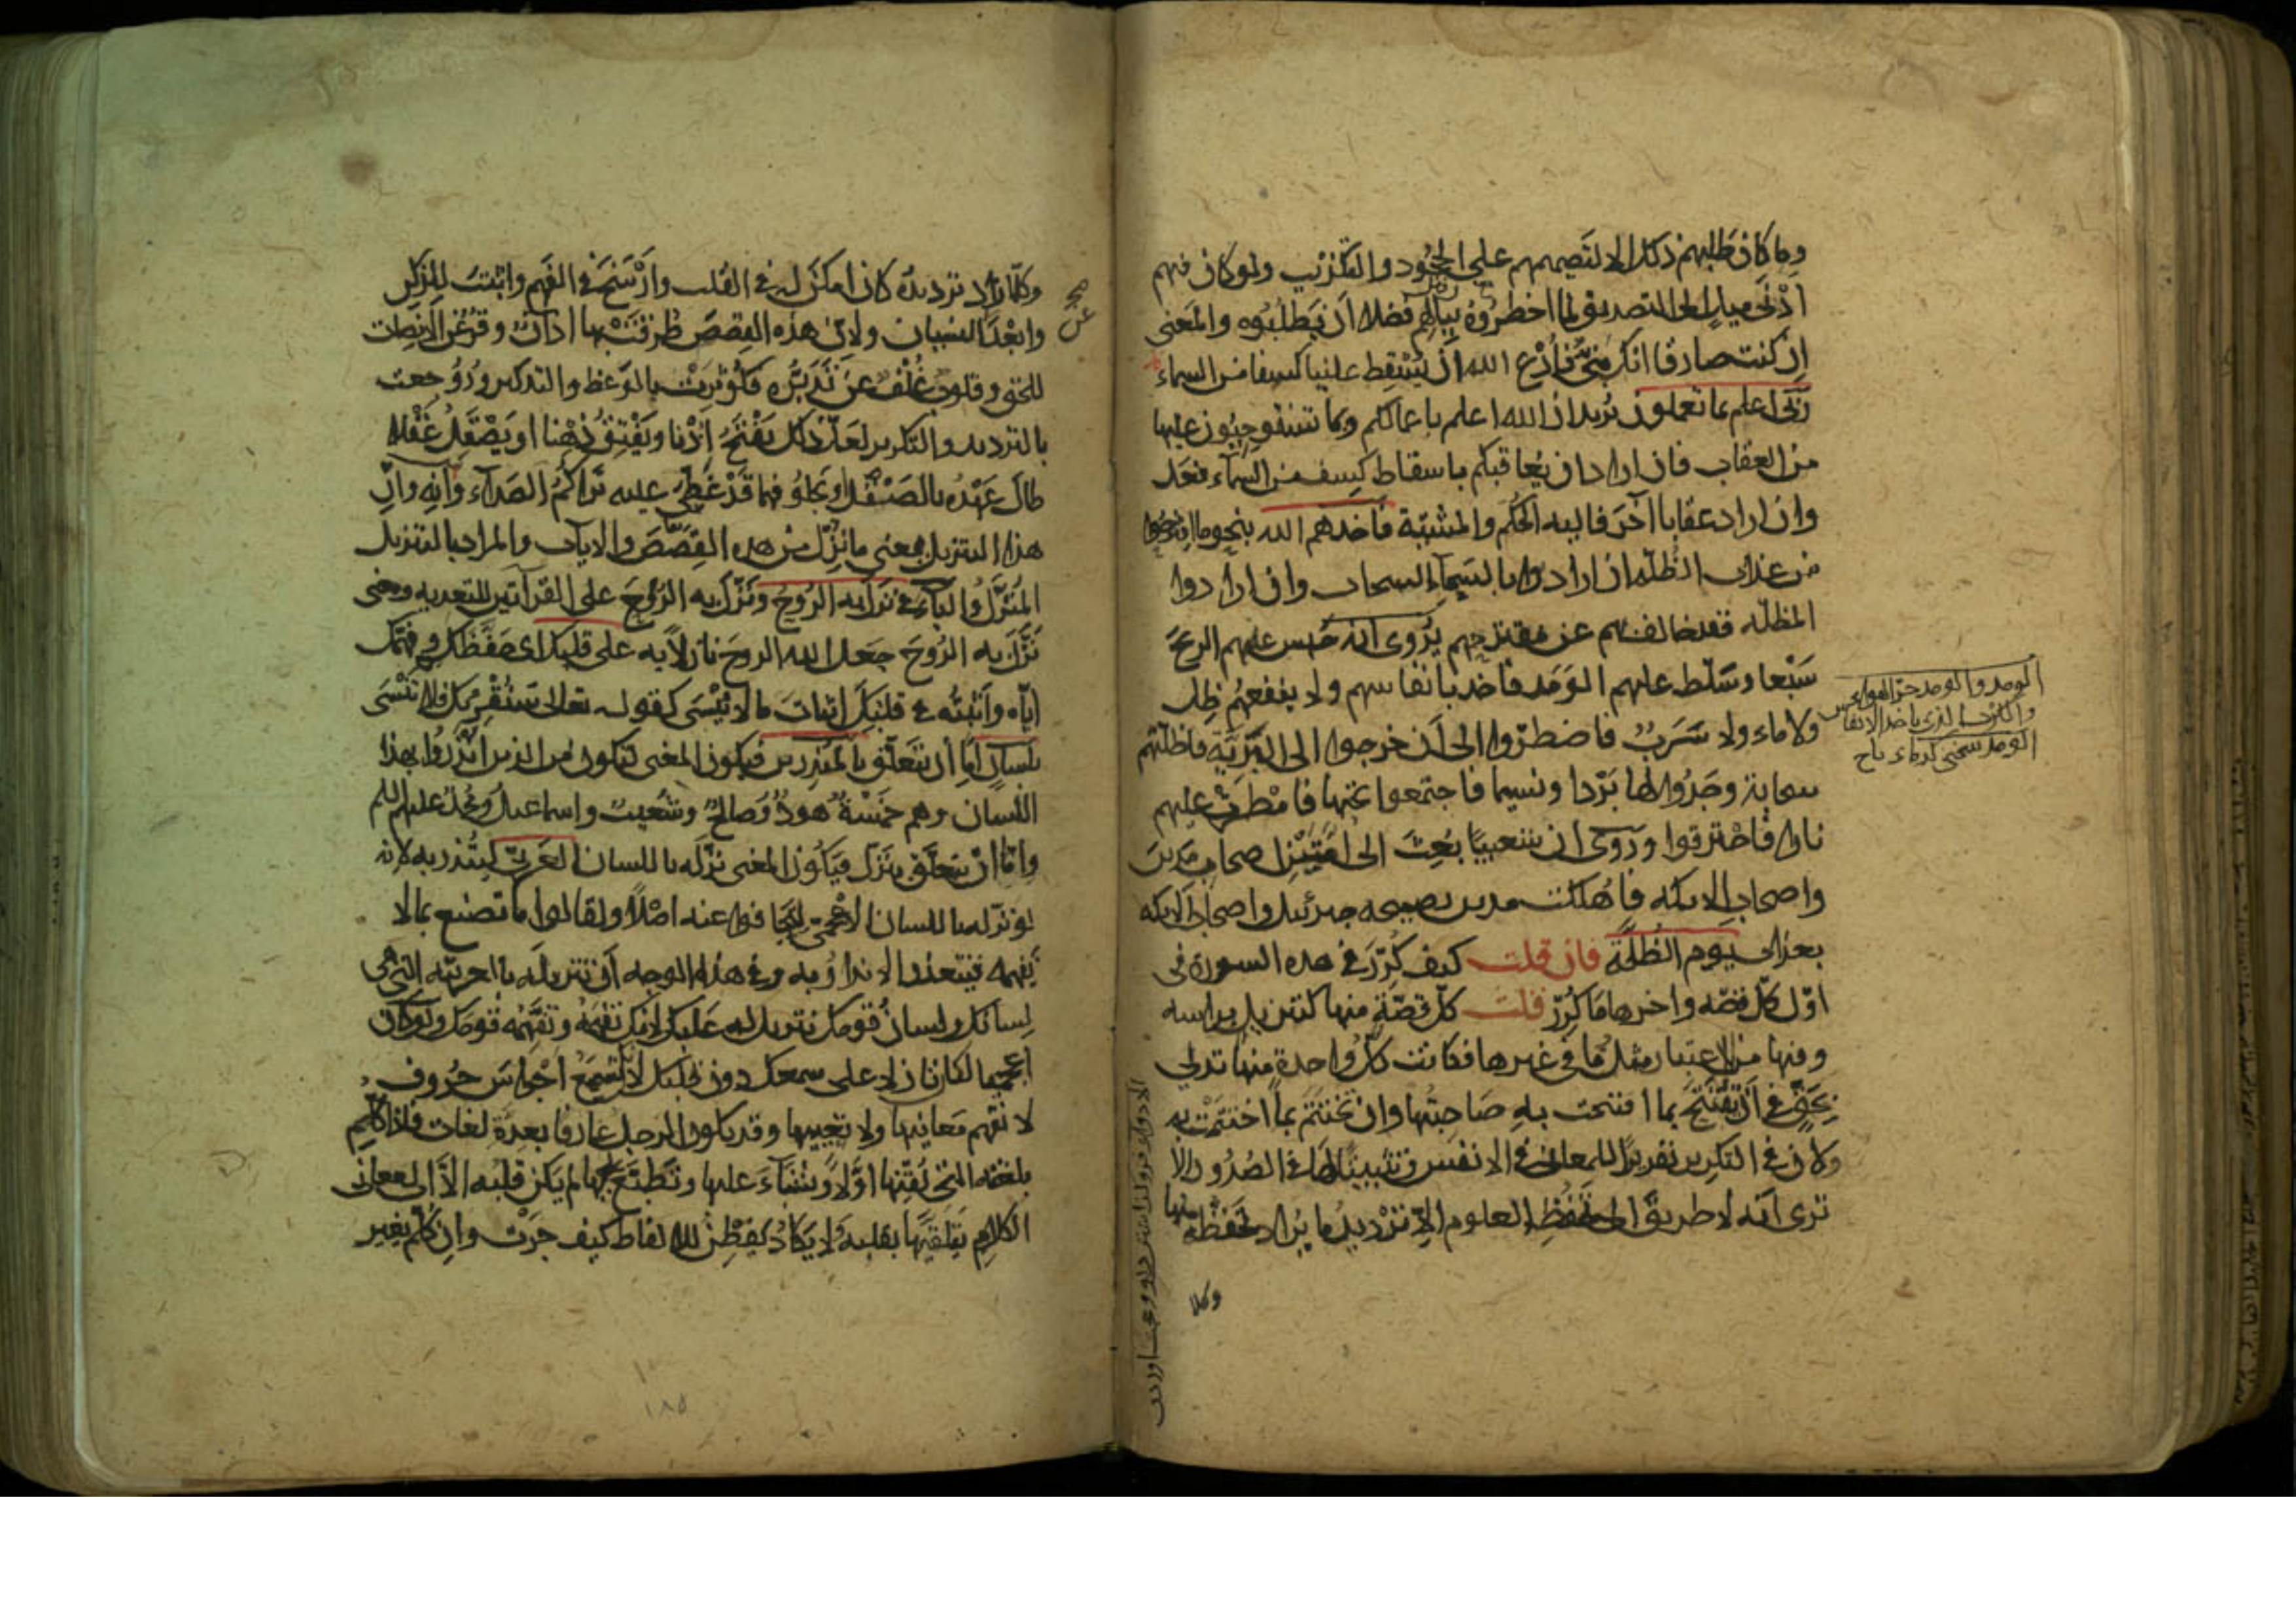 وما كان طلبهم ذلك الا لتصميمهم على الجحود والتكذيب ولو كان فيهم
أدنى ميل الى التصديق لما اخطروه ببالهم فضلا أن يطلبوه والمعنى
ان كنت صادقا انك نبي فادع الله أن يسقط علينا كسفا من السماء
ربي اعلم بما تعملون يريد ان الله اعلم باعمالكم وبما تستوجبون عليها
من العقاب فان اراد ان يعاقبكم باسقاط كسف من السماء فعل
وان اراد عقابا آخر فاليه الحكم والمشيئة فأخذهم الله بنحو ما اقترحوا
من عذاب الظلة ان ارادوا بالسماء السحاب وان ارادوا
المظلة فقد خالف بهم عن مقترحهم يروى انه حبس عليهم الريح
سبعا وسلط عليهم الومد فاخذ بانفاسهم ولا ينفعهم ظل
ولا ماء ولا سرب فاضطروا الى أن خرجوا الى البرية فاظلتهم
سحابة وجدوا لها بردا ونسيما فاجتمعوا تحتها فامطرت عليهم
نارا فاحترقوا وروى ان شعيبا بعث الى امتين اصحاب مدين
واصحاب الايكة فاهلكت مدين بصيحة جبرئيل واصحاب الايكة
بعذاب يوم الظلة فان قلت كيف كرر في هذه السورة في
اول كل قصة واخرها ما كرر قلت كل قصة منها كتنزيل براسه
وفيها من الاعتبار مثل ما في غيرها فكانت كل واحدة منها تدلي
بحق في أن تفتتح بما افتتحت به صاحبتها وان تختتم بما اختتمت به
ولان في التكرير تقريرا للمعاني في الانفس وتثبيتا لها في الصدور الا
ترى أنه لا طريق الى تحفظ العلوم الا ترديد ما يراد تحفظه منها
وكلما
الومد والومد حر الهواء
وكلما زاد ترديده كان امكن له في القلب وأرسخ في الفهم واثبت للذكر
وابعد من النسيان ولان هذه القصص طرقت بها اذان وقر عن الانصات
للحق وقلوب غلف عن تدبره فكوثرت بالوعظ والتذكير وروجعت
بالترديد والتكرير لعل ذلك يفتح أذنا ويفتق ذهنا او يصقل عقلا
طال عهده بالصقل او يجلو فهما قد غطى عليه تراكم الصداء وانه وان
هذا التنزيل يعني ما نزل من هذه القصص والايات والمراد بالتنزيل
المنزل والباء في نزل به الروح ونزل به الروح على القرآتين للتعدية ومعنى
نزل به الروح جعل الله الروح نازلا به على قلبك اى حفظك وفهمك
اياه واثبته في قلبك اثبات ما لا ينسى كقوله تعالى سنقرئك فلا تنسى
بلسان اما أن يتعلق بالمنذرين فيكون المعنى لتكون من الذين انذروا بهذا
اللسان وهم خمسة هود وصالح وشعيب واسماعيل ومحمد عليهم السلم
واما ان يتعلق بنزل فيكون المعنى نزله باللسان العربي لتنذر به لانه
لو نزله باللسان الاعجمي لتجافوا عنه اصلا ولقالوا ما تصنع بما لا
نفهمه فيتعذر الانذار به وفي هذا الوجه أن تنزيله بالعربية التي هي
لسانك ولسان قومك تنزيل له على قلبك لانك تفهمه وتفهمه قومك ولو كان
اعجميا لكان نازلا على سمعك دون قلبك لانك تسمع اجراس حروف
لا تفهم معانيها ولا تعيها وقد يكون الرجل عارفا بعدة لغات فاذا كلم
بلغته التي لقنها اولا ونشاء عليها وتطبع بها لم يكن قلبه الا الى معاني
الكلام يتلقيها بقلبه ولا يكاد يفطن للالفاظ كيف جرت وان كلم بغير
١٨٥